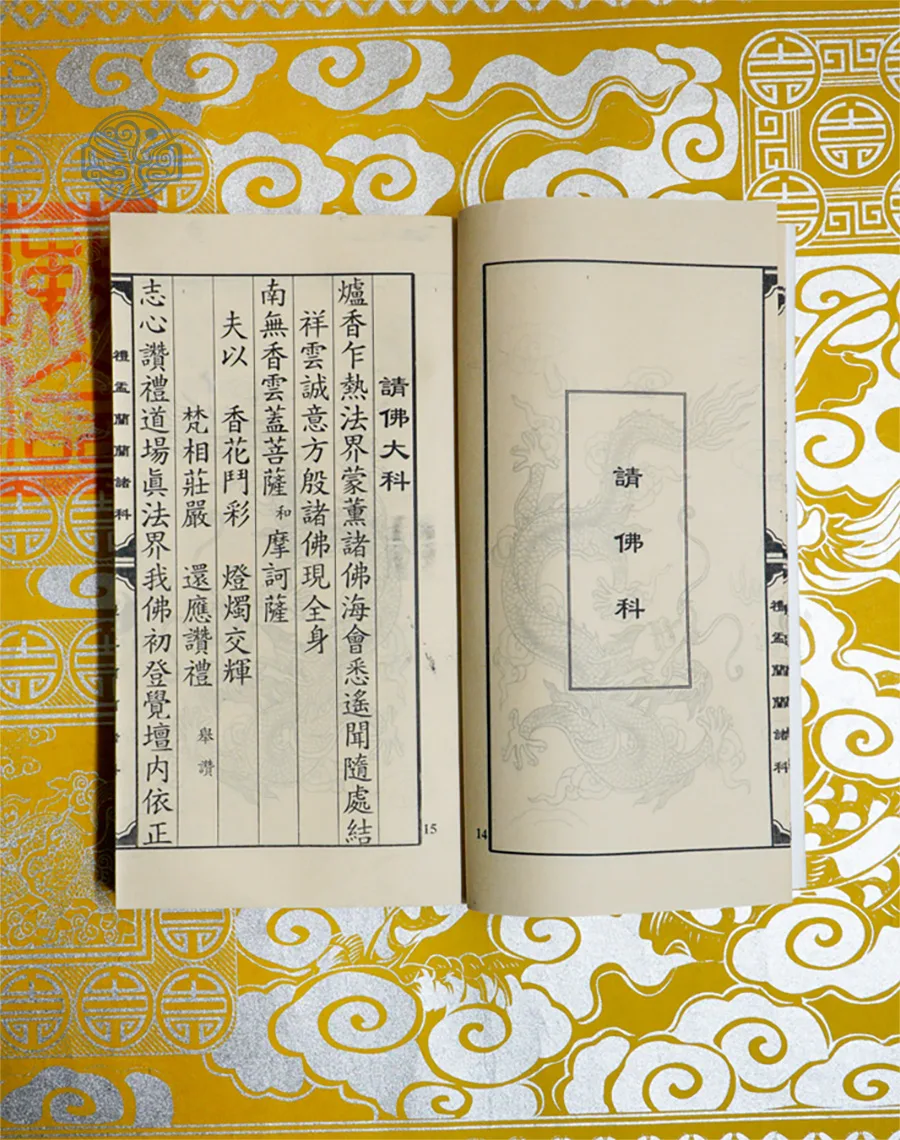 禮盂蘭蘭諸科
請佛科
14
15
請佛大科
爐香乍熱法界蒙薰諸佛海會悉遙聞隨處結
祥雲誠意方殷諸佛現全身
南無香雲蓋菩薩 和 摩訶薩
夫以 香花鬥彩 燈燭交輝
梵相莊嚴 還應讚禮 舉讚
志心讚禮道場眞法界我佛初登覺壇內依正
禮盂蘭蘭諸科